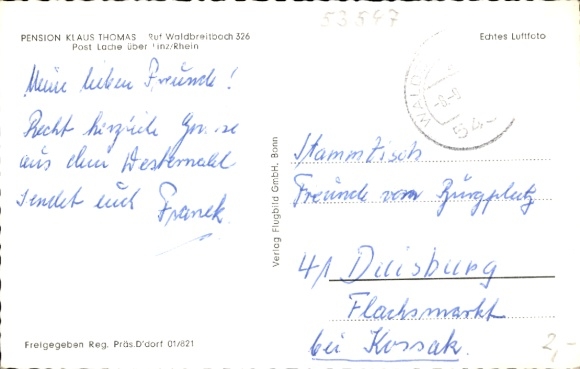 53547
PENSION KLAUS THOMAS Ruf Waldbreitbach 326
Post Lache über Linz/Rhein
Echtes Luftfoto
Meine lieben Freunde!
Recht herzliche Grüsse
aus dem Westerwald
sendet euch Franek
Verlag Flugbild GmbH, Bonn
WALD
54
Stammtisch
Freunde vom Burgplatz
41 Duisburg
Flachsmarkt
bei Kossak.
Freigegeben Reg. Präs. D'dorf 01/821
2,-